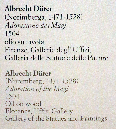 Albrecht Dürer
(Norimberga, 1471-1528)
Adorazione dei Magi
1504
olio su tavola
Firenze, Gallerie degli Uffizi,
Galleria delle Statue e delle Pitture
Albrecht Dürer
(Nuremberg, 1471-1528)
Adoration of the Magi
1504
Oil on wood
Florence, Uffizi Gallery
Gallery of the Statues and Paintings